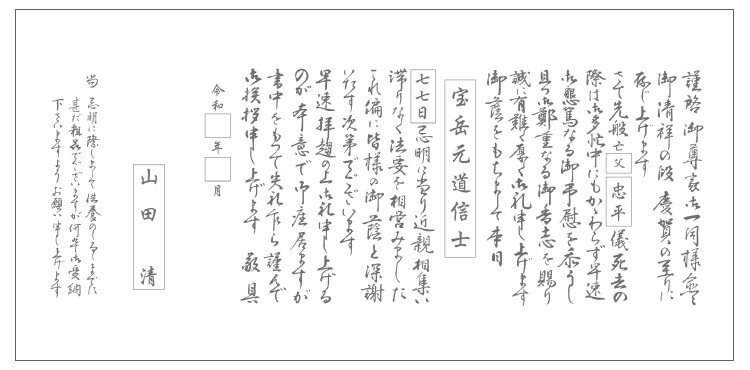 謹啓 御尊家御一同様愈々
御清祥の段 慶賀の至りに
存じ上げます
さて先般亡父 忠平 儀 死去の
際は御多忙中にもかゝわらず早速
御懇篤なる御弔慰を忝うし
且つ御鄭重なる御芳志を賜り
誠に有難く厚く御礼申し上げます
御蔭をもちまして本日
宝岳元道信士
七七日忌明に当り近親相集い
滞りなく法要を相営みました
これ偏に皆様の御蔭と深謝
いたす次第でございます
早速拝趨の上御礼申し上げる
のが本意で御座居ますが
書中をもって失礼乍ら謹んで
御挨拶申し上げます 敬具
令和 年 月
山田 清
尚 忌明に際しまして供養のしるしまでに
甚だ粗品でございますが何卒御受納
下さいますようお願い申し上げます